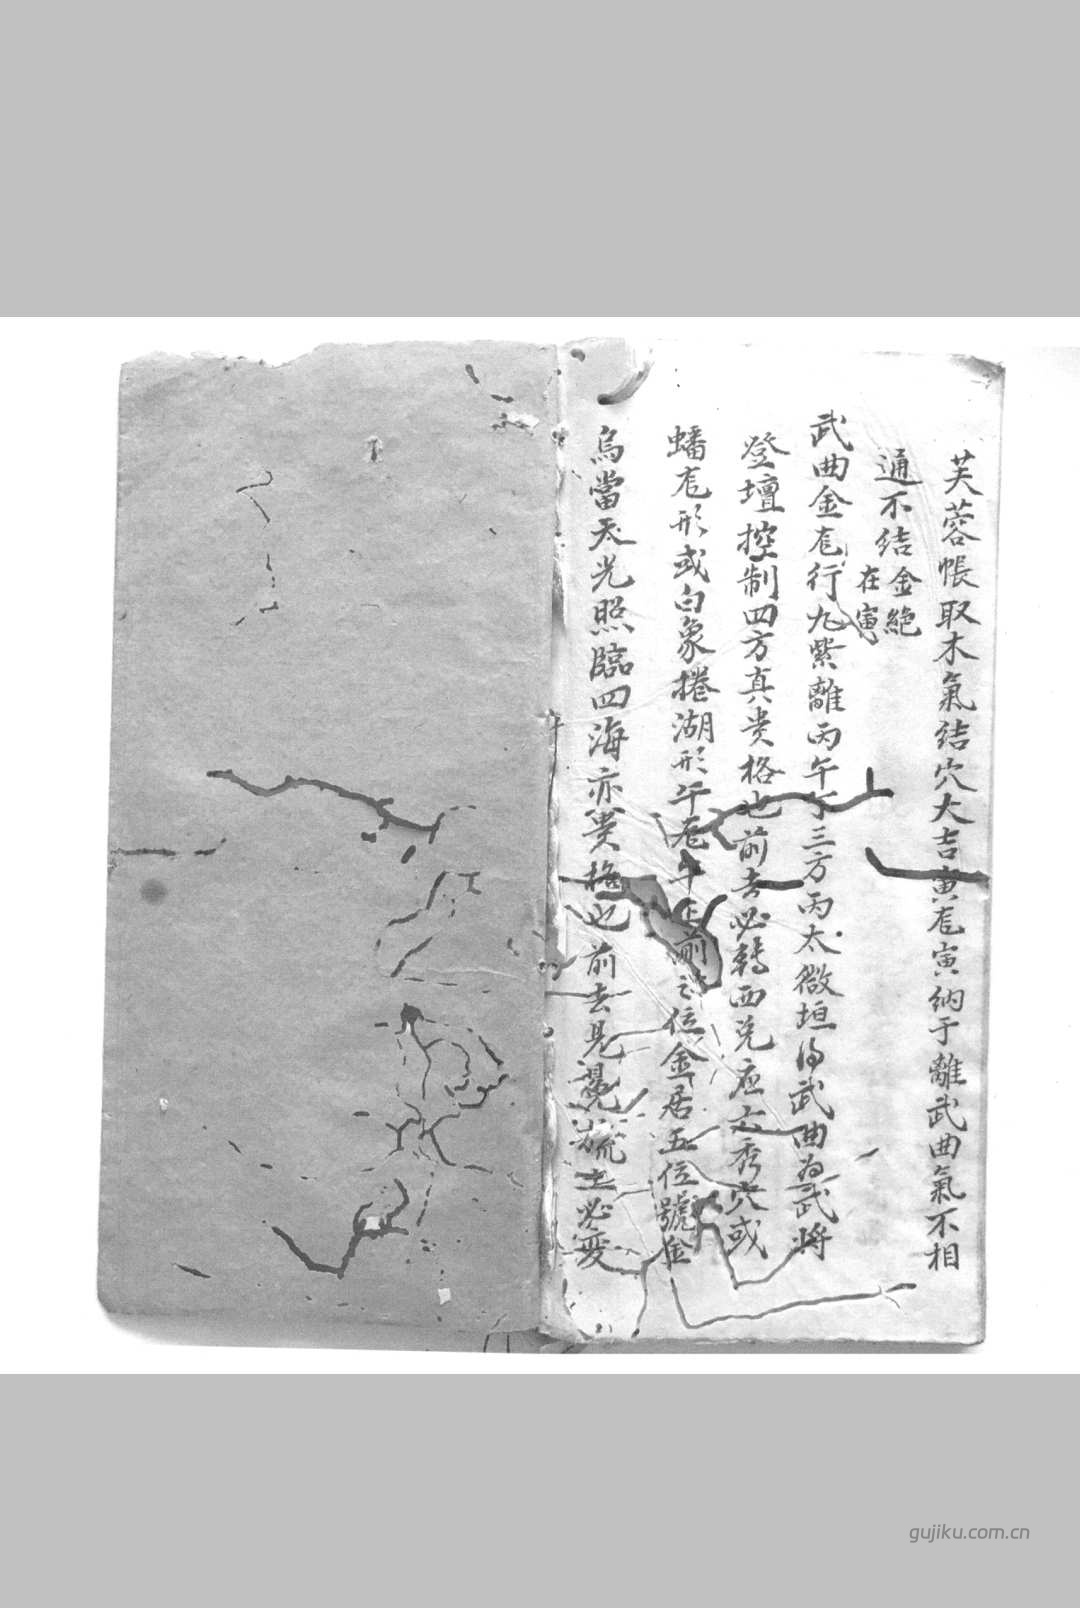 芙蓉帳取木氣結穴大吉寅龙寅納于離武曲氣不相
通不结金絶在寅
武曲金龙行九紫離丙午丁三方丙太微垣得武曲為武将
登壇控制四方真贵格也前去必轉西兑应六秀穴或
蟠龙形或白象捲湖形午龙午上前之位金居五位號金
烏當天光照臨四海亦贵格也前去見巽流土必变
gujiku.com.cn